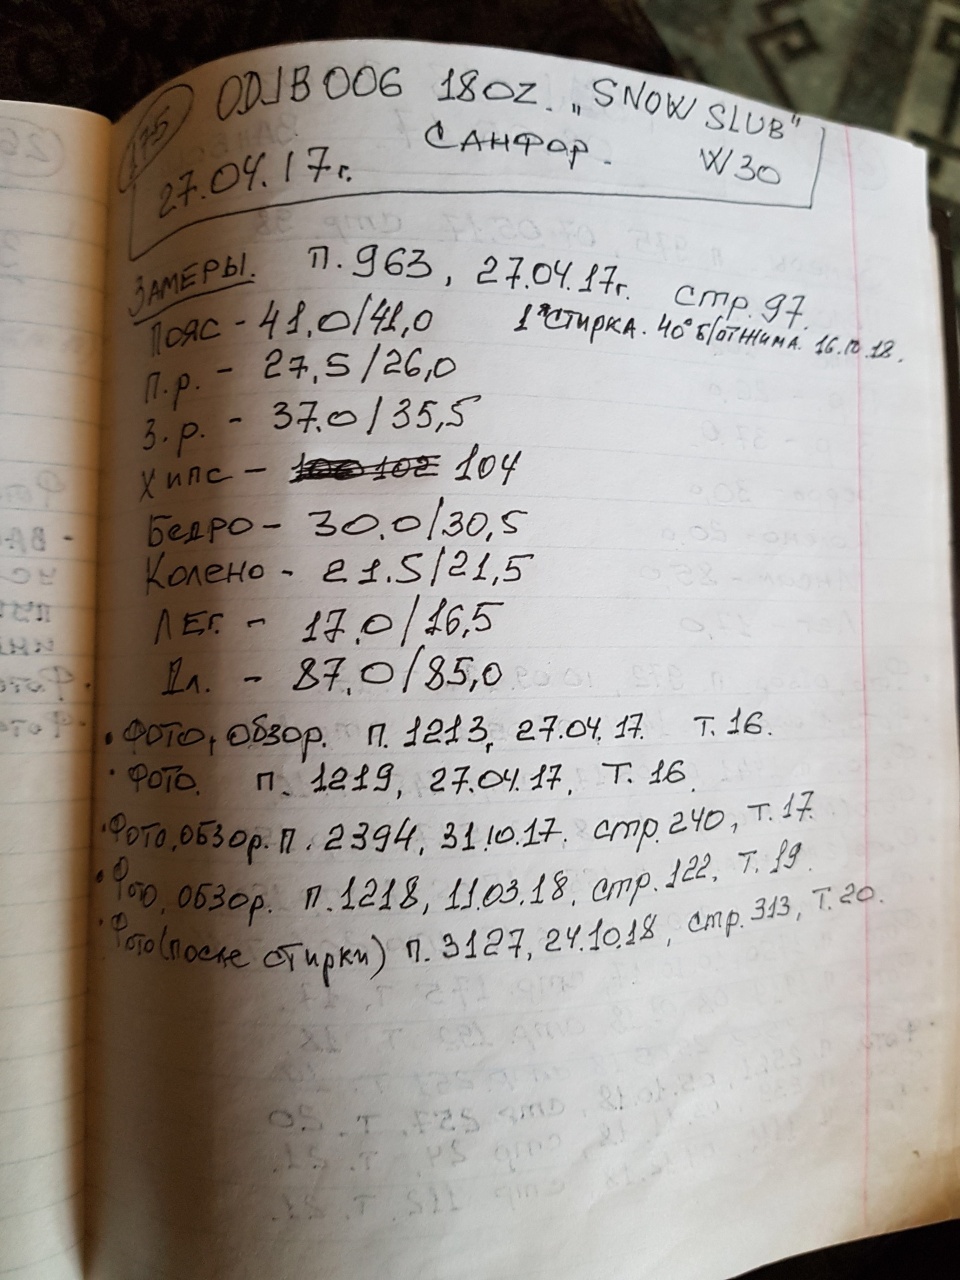 175
ODJB006 18OZ. „SNOW SLUB"
САНФОР. W30
27.04.17г.
ЗАМЕРЫ. П. 963, 27.04.17г. стр. 97.
Пояс - 41,0/41,0 1ª стирка. 40° б/отжима. 16.10.18.
П.р. - 27,5/26,0
З.р. - 37.0/35,5
Хипс - 104
Бедро - 30.0/30,5
Колено - 21.5/21,5
ЛЕГ. - 17.0/16,5
Дл. - 87,0/85,0
• Фото, обзор. П. 1213, 27.04.17. Т. 16.
• Фото. П. 1219, 27.04.17, Т. 16.
• Фото, обзор. П. 2394, 31.10.17. стр. 240, Т. 17.
• Фото, обзор. П. 1218, 11.03.18, стр. 122, Т. 19.
• Фото (после стирки) П. 3127, 24.10.18, стр. 313, Т. 20.